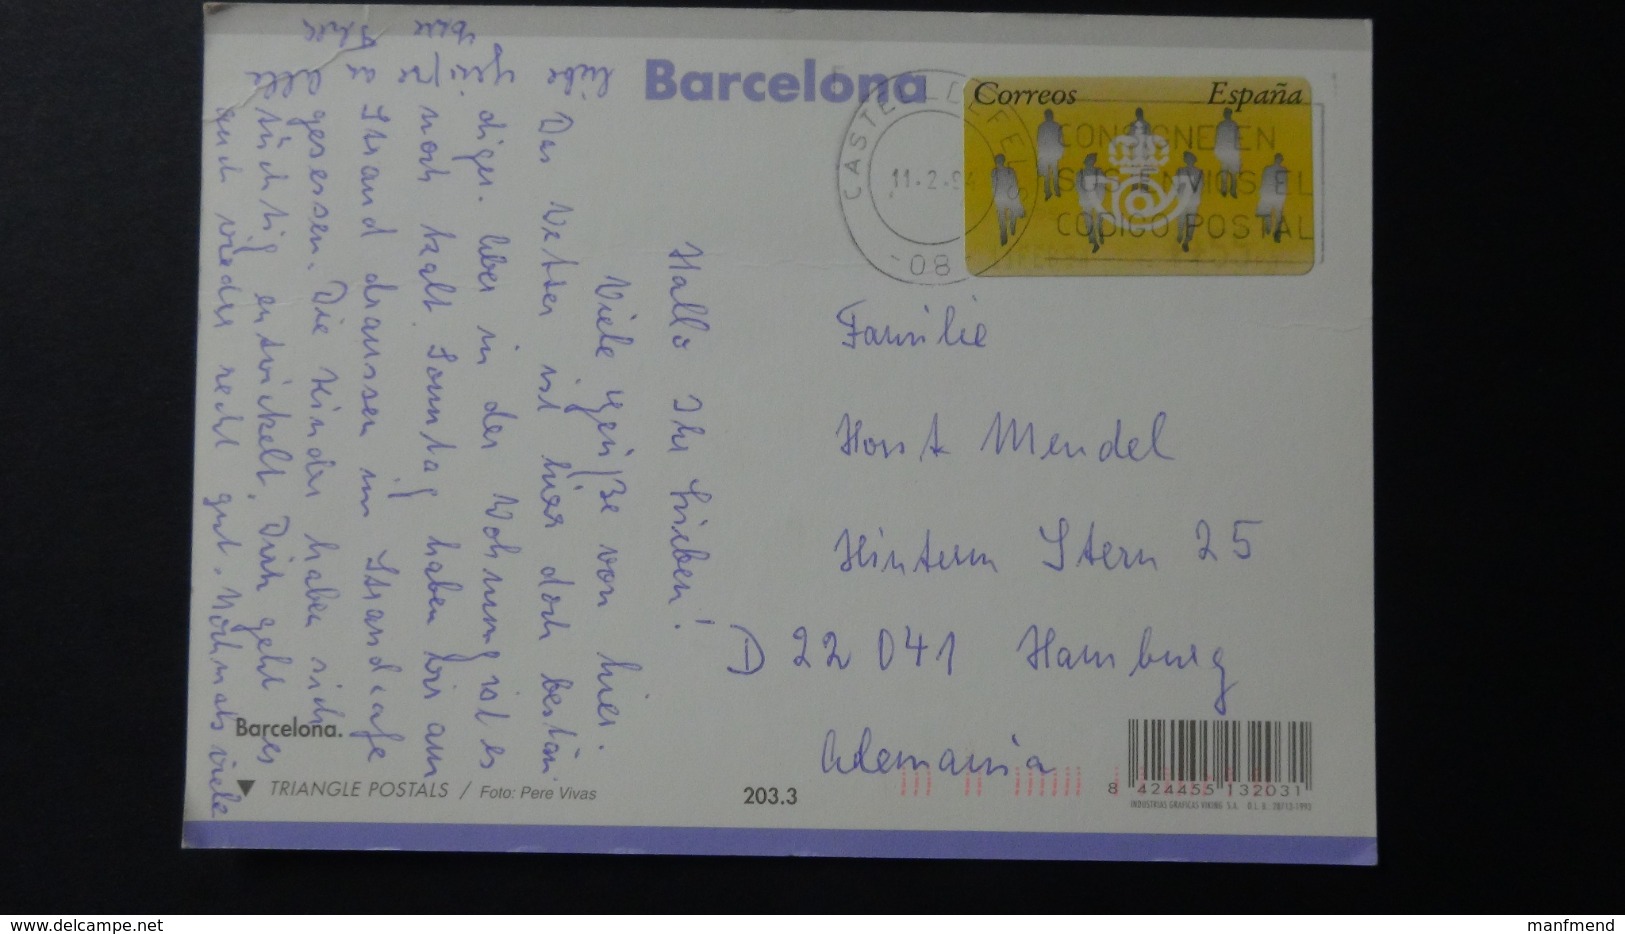 Barcelona
Correos España
CASTELLDEFELS
11-2-94
-08
CONSIGNE EN
SUS ENVIOS EL
CODIGO POSTAL
Hallo Ihr Lieben!
Viele Grüße von hier.
Das Wetter ist hier doch bestän
diger. Aber in der Wohnung ist es
noch kalt. Sonntag haben wir am
Strand draussen im Strandcafe
gegessen. Die Kinder haben sich
tüchtig entwickelt. Dirk geht es
auch wieder recht gut. Nochmals viele
liebe
Familie
Horst Mendel
Hinterm Stern 25
D 22 041 Hamburg
Alemania
Barcelona.
TRIANGLE POSTALS / Foto: Pere Vivas
203.3
8 424455 132031
INDUSTRIAS GRAFICAS VIKING S.A. D.L. B. 78/13-1993
manfmend